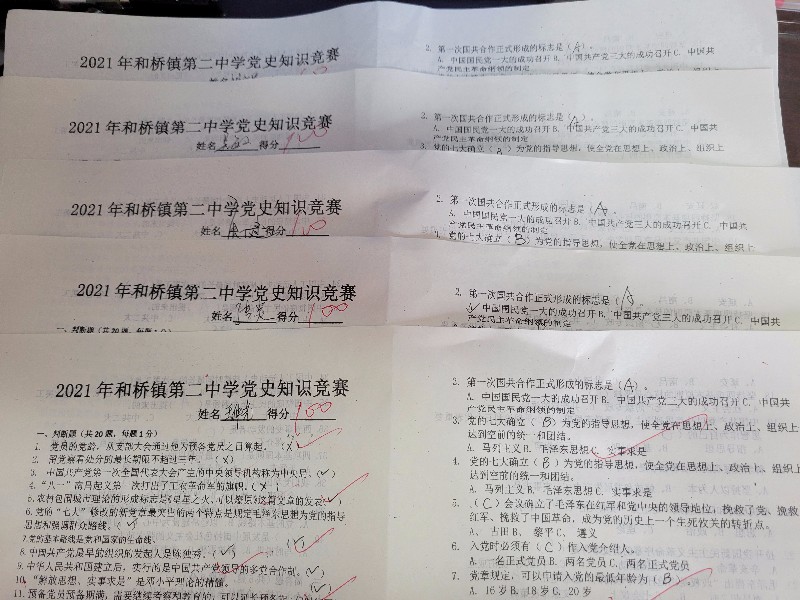 2021年和桥镇第二中学党史知识竞赛
2. 第一次国共合作正式形成的标志是（A）。
A. 中国国民党一大的成功召开 B. 中国共产党三大的成功召开 C. 中国共
产党民主革命纲领的制定
2021年和桥镇第二中学党史知识竞赛
姓名 得分 100
2. 第一次国共合作正式形成的标志是（A）。
A. 中国国民党一大的成功召开 B. 中国共产党三大的成功召开 C. 中国共
产党民主革命纲领的制定
3. 党的七大确立（B）为党的指导思想，使全党在思想上、政治上、组织上
2021年和桥镇第二中学党史知识竞赛
姓名 得分 100
2. 第一次国共合作正式形成的标志是（A）。
A. 中国国民党一大的成功召开 B. 中国共产党三大的成功召开 C. 中国共
产党民主革命纲领的制定
党的七大确立（B）为党的指导思想，使全党在思想上、政治上、组织上
2021年和桥镇第二中学党史知识竞赛
姓名 得分 100
一、判断题（共20题，每题1分）
2. 第一次国共合作正式形成的标志是（A）。
中国国民党一大的成功召开 B. 中国共产党三大的成功召开 C. 中国共
产党民主革命纲领的制定
2021年和桥镇第二中学党史知识竞赛
姓名 得分 100
一、判断题（共20题，每题1分）
1. 党员的党龄，从支部大会通过他为预备党员之日算起。（X）
2. 留党察看处分的最长期限不超过三年。（X）
3. 中国共产党第一次全国代表大会产生的中央领导机构称为中央局。（✓）
4. “八一”南昌起义第一次打出了工农革命军的旗帜。（X）
5. 农村包围城市理论的形成标志是《星星之火，可以燎原》这篇文章的发表。（✓）
6. 党的“七大”修改的新党章最突出的两个特点是规定毛泽东思想为党的指导
思想和强调群众路线。（✓）
7. 党的基本路线是党和国家的生命线。（✓）
8. 中国共产党最早的组织的发起人是陈独秀。（✓）
9. 中华人民共和国建立后，实行的是中国共产党领导的多党合作制。（✓）
10. “解放思想、实事求是”是邓小平理论的精髓。（✓）
11. 预备党员预备期满，需要继续考察和教育的，可以延长预备
2. 第一次国共合作正式形成的标志是（A）。
A. 中国国民党一大的成功召开 B. 中国共产党三大的成功召开 C. 中国共
产党民主革命纲领的制定
3. 党的七大确立（B）为党的指导思想，使全党在思想上、政治上、组织上
达到空前的统一和团结。
A. 马列主义 B. 毛泽东思想 C. 实事求是
4. 党的七大确立（B）为党的指导思想，使全党在思想上、政治上、组织上
达到空前的统一和团结。
A. 马列主义 B. 毛泽东思想 C. 实事求是
5. （C）会议确立了毛泽东在红军和党中央的领导地位，挽救了党、挽救了
红军、挽救了中国革命，成为党的历史上一个生死攸关的转折点。
A、 古田 B、 黎平 C、 遵义
6. 入党时必须有（C）作入党介绍人。
A. 一名正式党员 B. 两名党员 C. 两名正式党员
7. 党章规定，可以申请入党的最低年龄为（B）。
A. 16岁 B. 18岁 C. 20岁